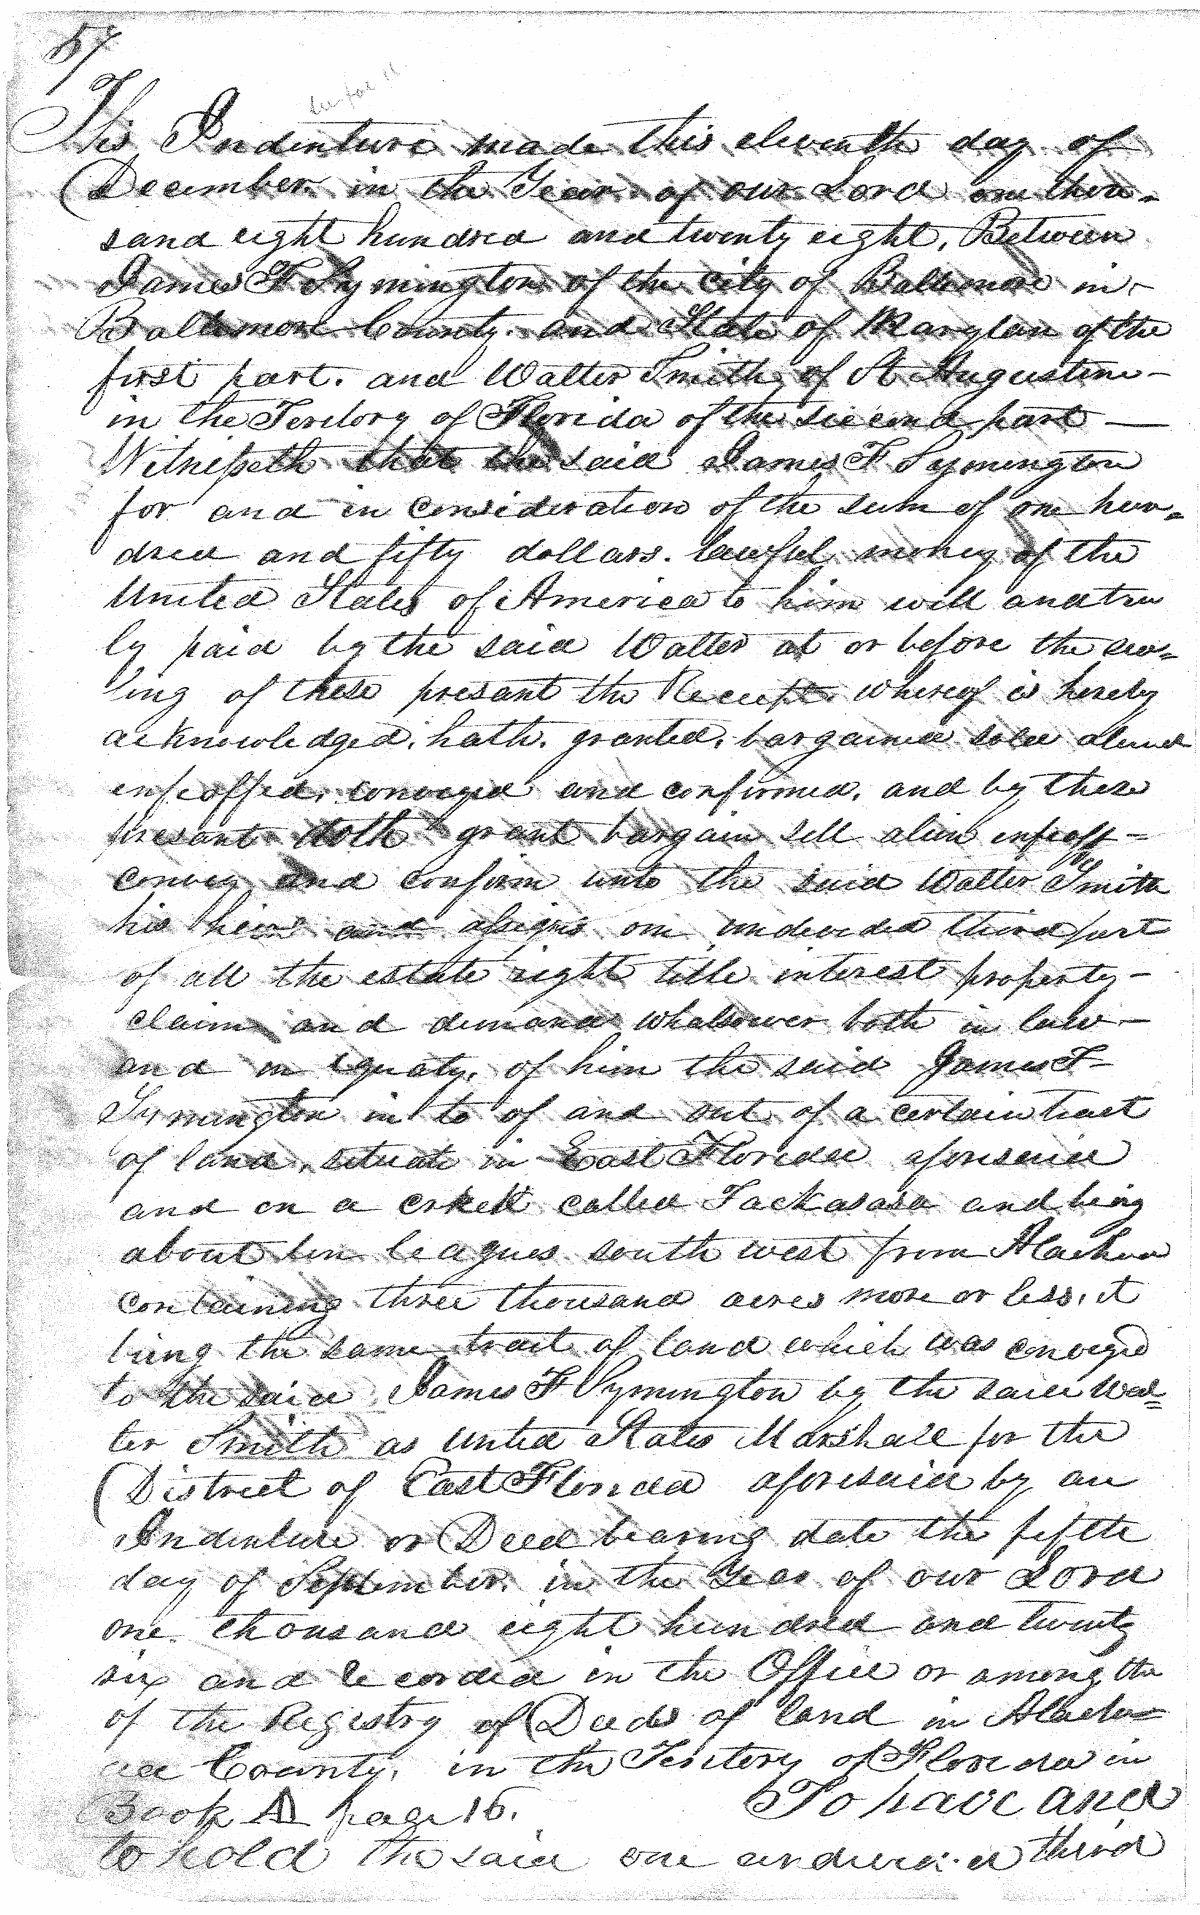 57
This Indenture made this eleventh day of
December. in the Year. of our Lord one thou-
sand eight hundred and twenty eight, Between
James F Symington of the city of Baltimore in
Baltimore County. and State of Marylan of the
first part. and Walter Smith of St Augustine
in the Teritory of Florida of the second part
Witnesseth that the said James F Symington
for and in consideration of the sum of one hun=
dred and fifty dollars. lawful money of the
United States of America to him will and tru
ly paid by the said Walter at or before the sea=
ling of these presant the Receipt whereof is hereby
acknowledged. hath. granted. bargained sold aliend
enfeoffed. conveyed and confirmed. and by these
presant doth grant bargain sell alien enfeoff
convey and confirm unto the said Walter Smith
his heirs and assigns one undevided third part
of all the estate right title interest property
claim and demand whatsoever both in law
and in equaty. of him the said James F
Symington in to of and out of a certain tract
of land. situate in East Florida aforesaid
and on a creek called Tackasasa and being
about ten leagues south west from Alachua
containing three thousand acres more or less. it
being the same tract of land which was conveyed
to the said James F Symington by the said Wal=
ter Smith as United States Marshall for the
District of East Florida aforesaid by an
Indenture or Deed bearing date the fifth
day of September. in the Year of our Lord
one thousand eight hundred and twenty
six and Recorded in the Office or among the
of the Registry of Deeds of land in Alach=
ua County. in the Teritory of Florida in
Book A page 16. To have and
to hold the said one undevided third